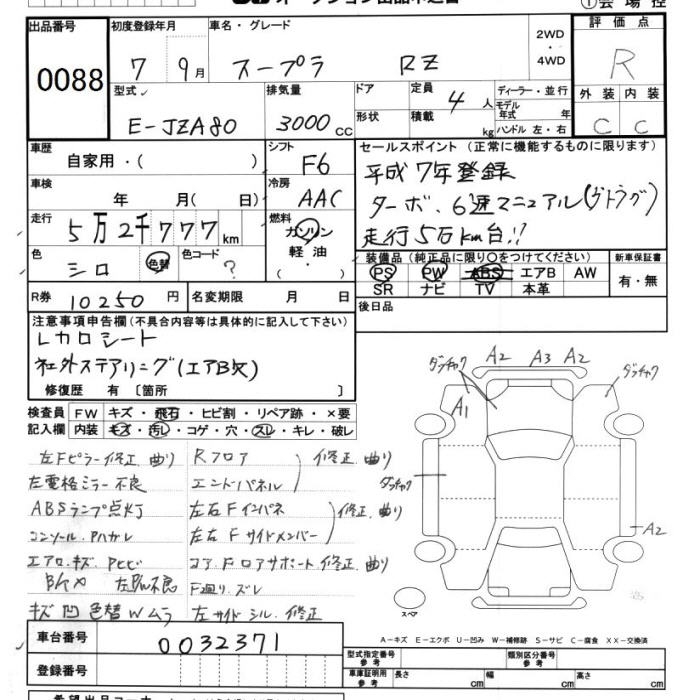 ①会場控
出品番号 初度登録年月 車名・グレード 2WD・4WD 評価点
0088 7 9月 スープラ RZ R
型式 排気量 ドア 定員 ディーラー・並行 外装 内装
E-JZA80 3000CC 形状 積載 4人 kg モデル年式 年 ハンドル 左・右 C C
車歴 自家用・( ) シフト F6 セールスポイント (正常に機能するものに限ります)
平成7年登録
車検 年 月( 日) 冷房 AAC
ターボ、6速マニュアル(ゲトラグ)
走行 5万2千777km 燃料 ガソリン 軽油・( )
走行5万km台!!
色 シロ 色替 色コード ?
装備品(純正品に限り○をつけてください) 新車保証書
PS PW ABS エアB AW 有・無
SR ナビ TV 本革
R券 10250円 名変期限 月 日 後日品
注意事項申告欄(不具合内容等は具体的に記入して下さい)
レカロシート
社外ステアリング(エアB欠)
修復歴 有 〔箇所 〕
検査員 FW キズ・飛石・ヒビ割・リペア跡・×要
記入欄 内装 キズ・汚レ・コゲ・穴・スレ・キレ・破レ
ダッチャク A2 A3 A2 ダッチャク
A1
左Fピラー修正、曲り Rフロア 修正、曲り
左電格ミラー不良 エンドパネル
ダッチャク
ABSランプ点灯 左右Fインパネ 修正、曲り
コンソール、Pハガレ 左右Fサイドメンバー
A2
エアロ、キズ、Pヒビ コアFロアサポート、修正、曲り
左PW不良 F廻リ、ズレ
キズ 凹 色替 Wムラ 左サイドシル、修正
スペア
A-キズ E-エクボ U-凹み W-補修跡 S-サビ C-腐食 XX-交換済
車台番号 0032371
型式指定番号 参考 類別区分番号 参考
登録番号 車庫証明用 参考 長さ cm 幅 cm 高さ cm